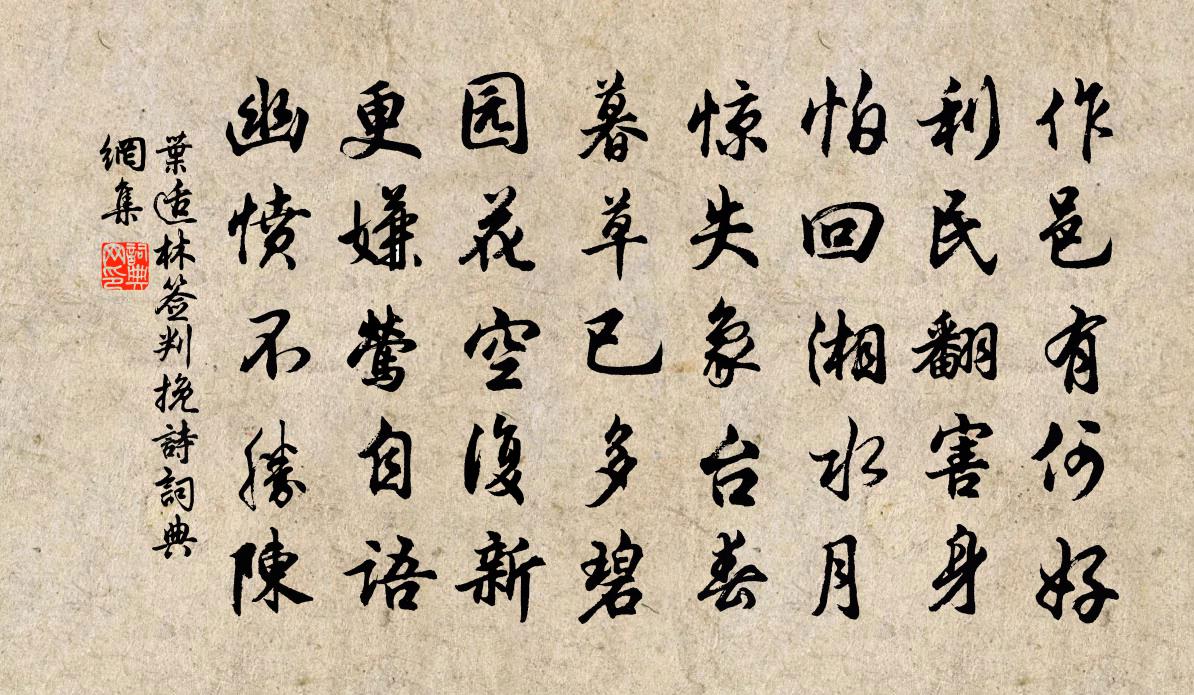 作邑有何好
利民翻害身
怕回湘水月
惊失象台春
暮草已多碧
园花空復新
更嫌莺自语
幽愤不勝陳
葉适林签判挽詩詞典
網集
詞典
网印